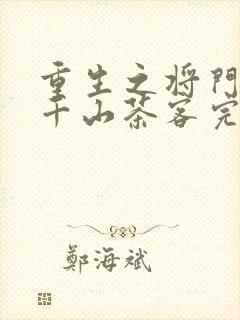 重生之将門
千山茶客完
鄭海斌